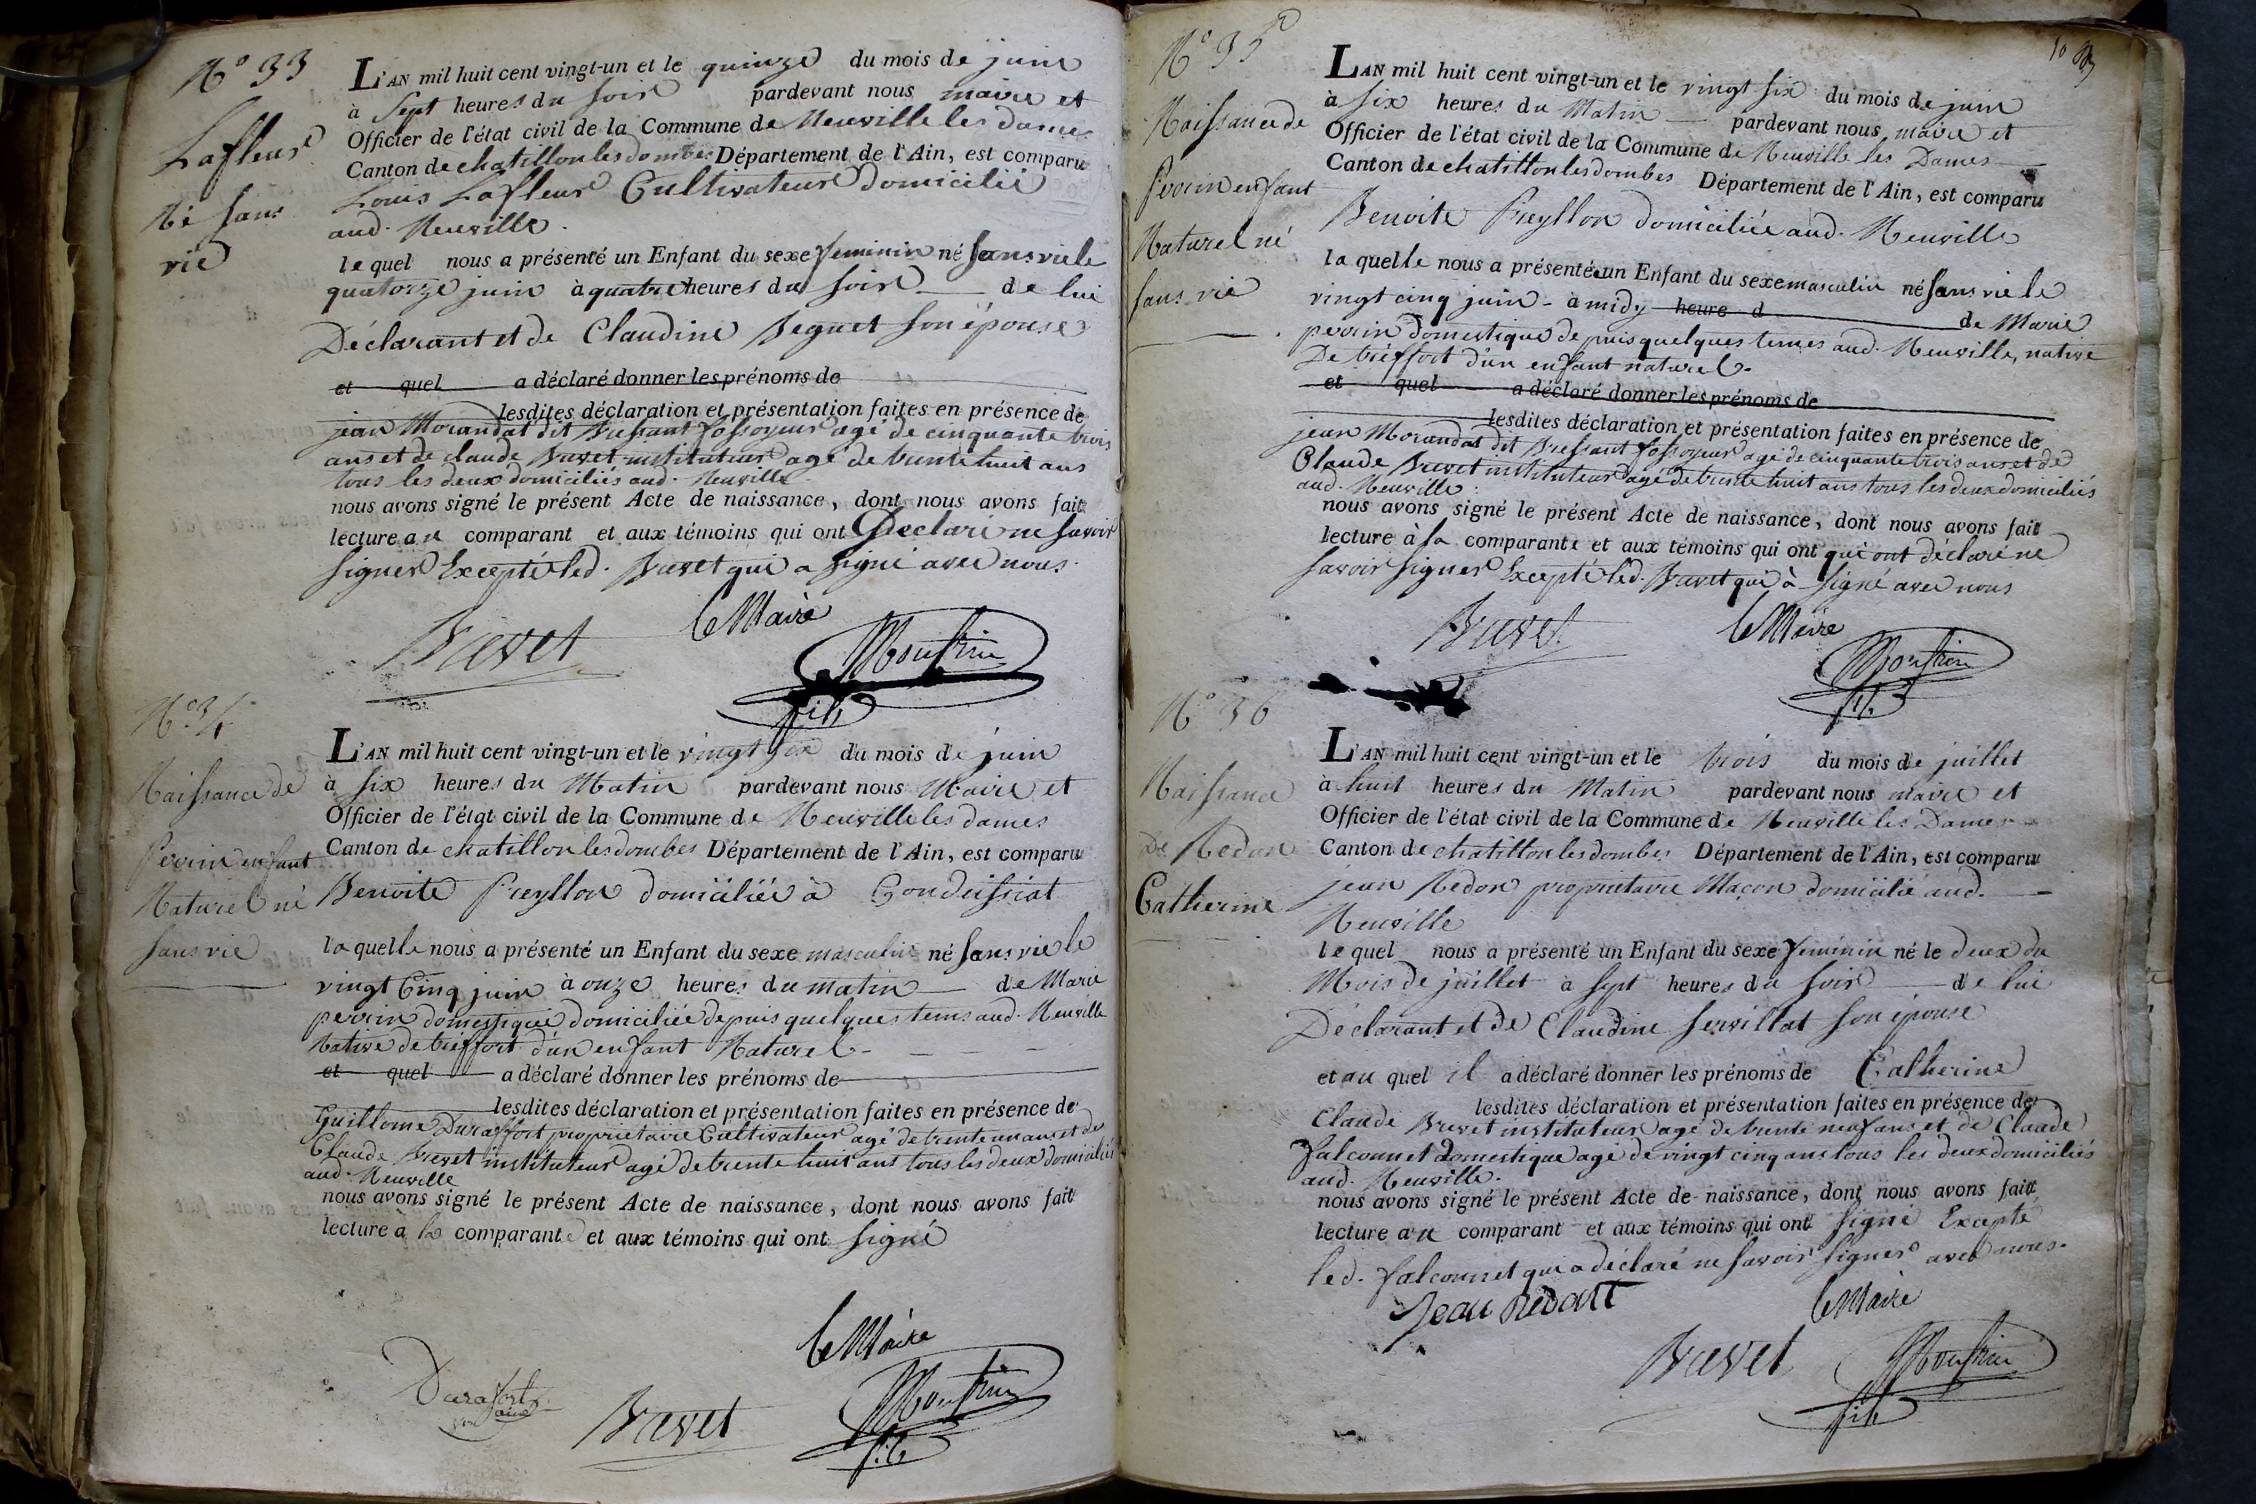 N° 33
Lafleur
Né sans
vie
L'AN mil huit cent vingt-un et le quinze du mois de juin
à Sept heures du soir pardevant nous maire et
Officier de l'état civil de la Commune de Neuville les dames
Canton de chatillon les dombes Département de l'Ain, est comparu
Louis Lafleur Cultivateur domicilié
aud. Neuville.
lequel nous a présenté un Enfant du sexe feminin né sans vie le
quatorze juin à quatre heures du soir de lui
Déclarant et de Claudine Beguet son épouse
et quel a déclaré donner les prénoms de
lesdites déclaration et présentation faites en présence de
jean Morandat dit Bressant fossoyeur agé de cinquante trois
ans et de claude Brevet instituteur agé de trente huit ans
tous les deux domiciliés aud. Neuville
nous avons signé le présent Acte de naissance, dont nous avons fait
lecture au comparant et aux témoins qui ont Declaré ne savoir
signer Excepté led. Brevet qui a signé avec nous.
Brevet le Maire
Monfrin
fils
N° 34
Naissance de
Perrin enfant
Naturel né
sans vie
L'AN mil huit cent vingt-un et le vingt six du mois de juin
à six heures du Matin pardevant nous Maire et
Officier de l'état civil de la Commune de Neuville les dames
Canton de chatillon les dombes Département de l'Ain, est comparu
Benoite Preyllon domiciliée à Condeissiat
laquelle nous a présenté un Enfant du sexe masculin né sans vie le
vingt Cinq juin à onze heures du matin de Marie
perrin domestique domiciliée depuis quelques tems aud. Neuville
Native de tréffort d'un enfant Naturel
et quel a déclaré donner les prénoms de
lesdites déclaration et présentation faites en présence de
Guillome Duraffort proprietaire Cultivateur agé de trente un ans et de
Claude Brevet instituteur agé de trente huit ans tous les deux domiciliés
aud. Neuville
nous avons signé le présent Acte de naissance, dont nous avons fait
lecture à la comparante et aux témoins qui ont signé
le Maire
Durafort
ainé
Brevet
Monfrin
fils
10
N° 35
Naissance de
Perrin enfant
Naturel né
sans vie
L'AN mil huit cent vingt-un et le vingt six du mois de juin
à six heures du Matin pardevant nous maire et
Officier de l'état civil de la Commune de Neuville les Dames
Canton de chatillon les dombes Département de l'Ain, est comparu
Benoite Preyllon domiciliée aud. Neuville
laquelle nous a présenté un Enfant du sexe masculin né sans vie le
vingt cinq juin - à midy heure d de Marie
perrin domestique depuis quelques tems aud. Neuville, native
De tréffort d'un enfant naturel.
et quel a déclaré donner les prénoms de
lesdites déclaration et présentation faites en présence de
jean Morandat dit Bressant fossoyeur agé de cinquante trois ans et de
Claude Brevet instituteur agé de trente huit ans tous les deux domiciliés
aud. Neuville.
nous avons signé le présent Acte de naissance, dont nous avons fait
lecture à la comparante et aux témoins qui ont qui ont déclaré ne
savoir signer Excepté led. Brevet qui à signé avec nous
Brevet le Maire
Monfrin
fils
N° 36
Naissance
De Redon
Catherine
L'AN mil huit cent vingt-un et le trois du mois de juillet
à huit heures du Matin pardevant nous maire et
Officier de l'état civil de la Commune de Neuville les Dames
Canton de chatillon les dombes Département de l'Ain, est comparu
jean Redon proprietaire Maçon domicilié aud.
Neuville
lequel nous a présenté un Enfant du sexe feminin né le deux du
Mois de juillet à sept heures du soir de lui
Déclarant et de Claudine Servillat son épouse
et au quel il a déclaré donner les prénoms de Catherine
lesdites déclaration et présentation faites en présence de
Claude Brevet instituteur agé de trente neuf ans et de Claude
falconnet domestique agé de vingt cinq ans tous les deux domiciliés
aud. Neuville.
nous avons signé le présent Acte de naissance, dont nous avons fait
lecture au comparant et aux témoins qui ont signé Excepté
led. falconnet qui a déclaré ne savoir signer avec nous.
Jean Redon le Maire
Brevet Monfrin
fils